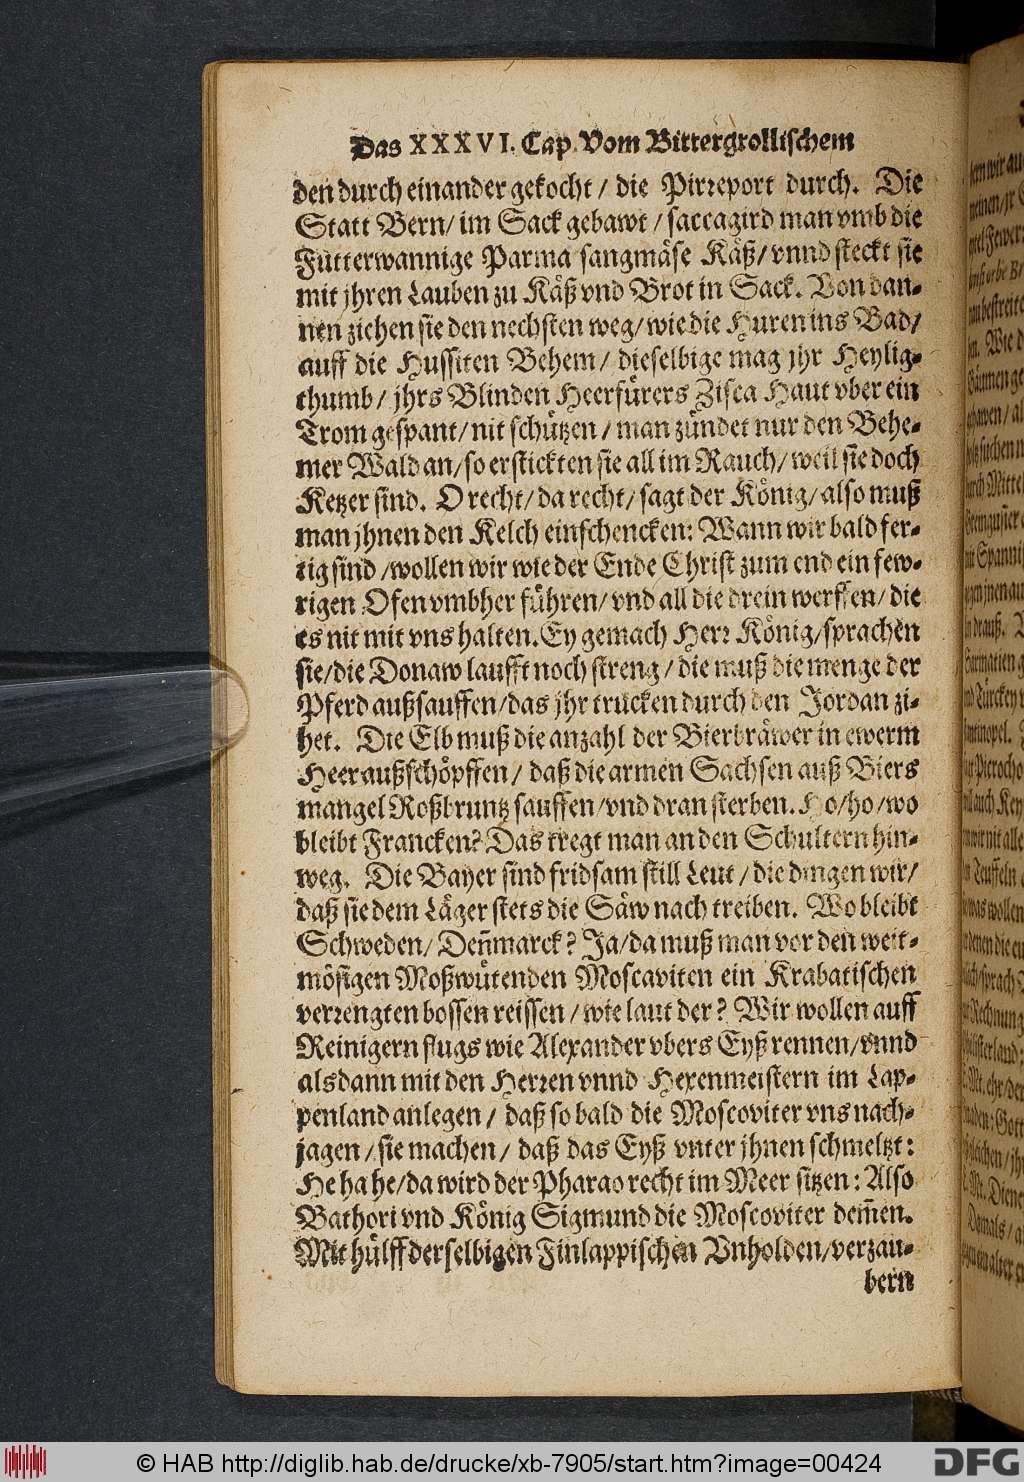 Das XXXVI. Cap. Vom Bittergrollischem
den durch einander gekocht / die Pirreport durch. Die
Statt Bern / im Sack gebawt / saccagird man vmb die
Fütterwannige Parma sangmäse Käß / vnnd steckt sie
mit jhren Lauben zu Käß vnd Brot in Sack. Von dan-
nen ziehen sie den nechsten weg / wie die Huren ins Bad /
auff die Hussiten Behem / dieselbige mag jhr Heylig-
thumb / jhrs Blinden Heerfürers Zisca Haut vber ein
Trom gespant / nit schützen / man zündet nur den Behe-
mer Wald an / so erstickten sie all im Rauch / weil sie doch
Ketzer sind. O recht / da recht / sagt der König / also muß
man jhnen den Kelch einschencken: Wann wir bald fer-
tig sind / wollen wir wie der Ende Christ zum end ein few-
rigen Ofen vmbher führen / vnd all die drein werffen / die
es nit mit vns halten. Ey gemach Herr König / sprachen
sie / die Donaw laufft noch streng / die muß die menge der
Pferd außsauffen / das jhr trucken durch den Jordan zi-
het. Die Elb muß die anzahl der Bierbräwer in ewerm
Heer außschöpffen / daß die armen Sachsen auß Biers
mangel Roßbruntz sauffen / vnd dran sterben. Ho / ho / wo
bleibt Francken? Das tregt man an den Schultern hin-
weg. Die Bayer sind fridsam still Leut / die dingen wir /
daß sie dem Läger stets die Säw nach treiben. Wo bleibt
Schweden / Deñmarck? Ja / da muß man vor den weit-
mösigen Moßwütenden Moscaviten ein Krabatischen
verrengten bossen reissen / wie laut der? Wir wollen auff
Reinigern flugs wie Alexander vbers Eyß rennen / vnnd
alsdann mit den Herren vnnd Hexenmeistern im Lap-
penland anlegen / daß so bald die Moscoviter vns nach-
jagen / sie machen / daß das Eyß vnter jhnen schmeltzt:
He ha he / da wird der Pharao recht im Meer sitzen: Also
Bathori vnd König Sigmund die Moscoviter dem̃en.
Mit hülff derselbigen Finlappischen Vnholden / verzau-
bern
© HAB http://diglib.hab.de/drucke/xb-7905/start.htm?image=00424
DFG